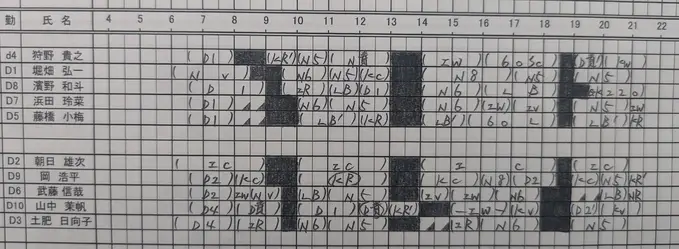 勤 氏名 4 5 6 7 8 9 10 11 12 13 14 15 16 17 18 19 20 21 22
d4 狩野 貴之 (D1) (KR')(N5)(N貴) (ZW)(60Sc) (D貴)(KV)
D1 堀畑 弘一 (N V) (N6)(N5)(KC) (N8)(N5) (N5)
D8 濱野 和斗 (D 1) (ZR)(LB)(D1) (N6)(LB) 220)
D7 浜田 玲菜 (N6)(N5) (N6)(ZW)(ZV) (N5) ZW
D5 藤橋 小梅 (LB')(KR) (LB')(60 L) (LB')(KR
D2 朝日 雄次 (ZC) (ZC) (Z C) (ZC)
D9 岡 浩平 (D2)(KC) (KR) (KC)(N8)(D2) (KC)(N5)KR'
D6 武藤 信哉 (D2)ZW(NV) (LB)(N5) (ZV)(ZW)(N6) LB)NR
D10 山中 茉帆 (D4)(D貴) (D1)(D貴)(KR') (-ZW-)(KV) (D2')(KV)
D3 土肥 日向子 (D4)(ZR) (N6)(N5) (ZR)(N6) (N5)